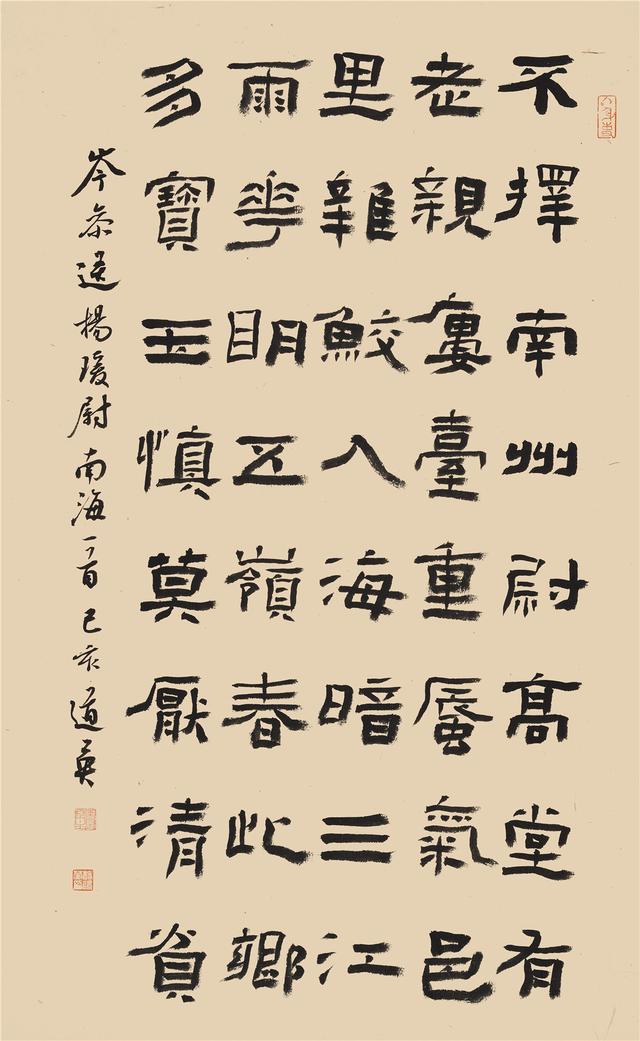 不擇南州尉高堂有
老親廔臺重蜃氣邑
里雜鮫人海暗三江
雨華明五嶺春此鄉
多寶玉慎莫厭清貧
岑參送楊瑗尉南海一首己亥道